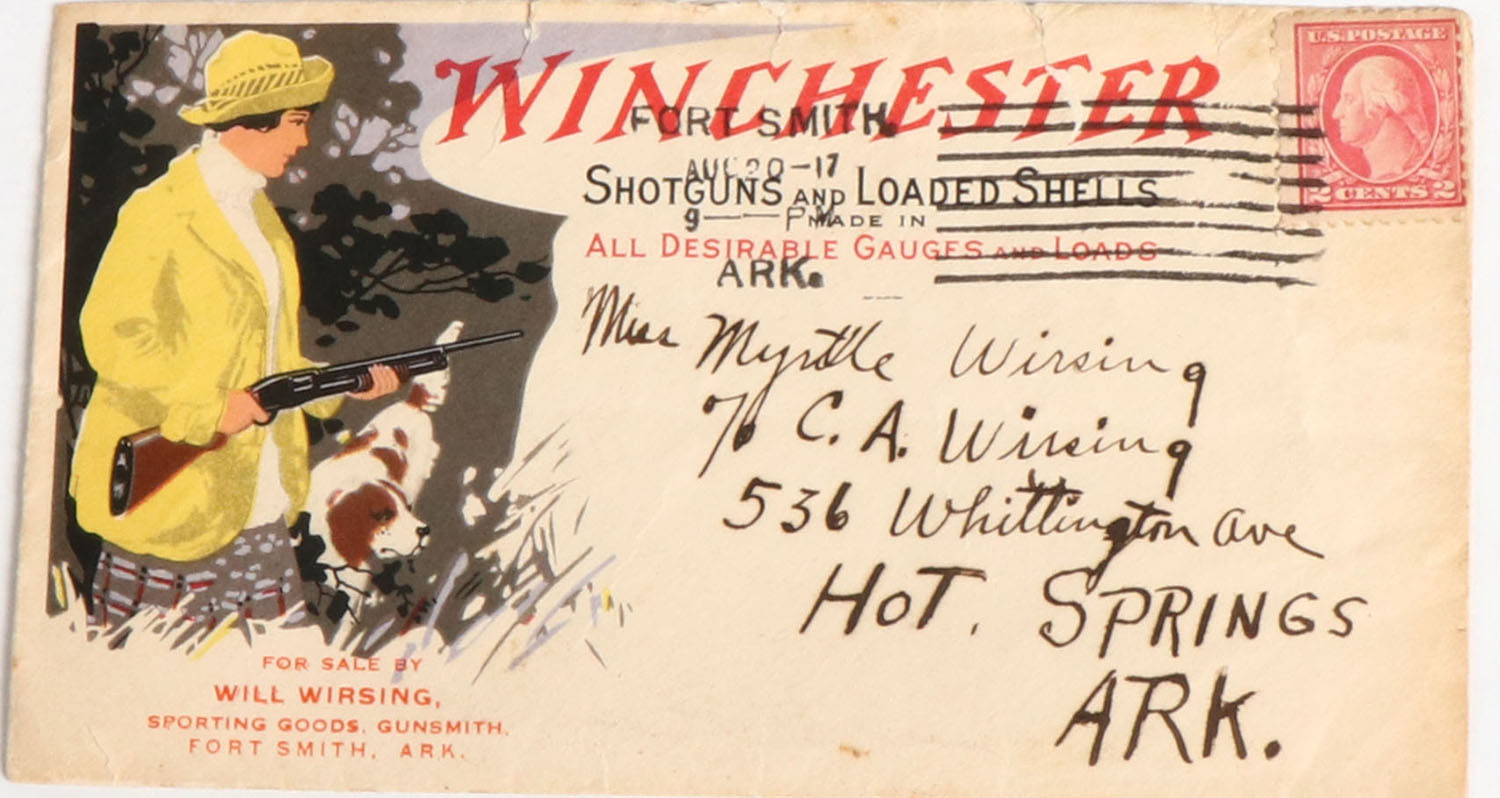 WINCHESTER
FORT SMITH.
AUG 20 -17
SHOTGUNS AND LOADED SHELLS
9 — PM
MADE IN
ALL DESIRABLE GAUGES AND LOADS
ARK.
U.S. POSTAGE
2 CENTS 2
Miss Myrtle Wirsing
℅ C. A. Wirsing
536 Whittington Ave
HOT. SPRINGS
ARK.
FOR SALE BY
WILL WIRSING,
SPORTING GOODS, GUNSMITH,
FORT SMITH, ARK.